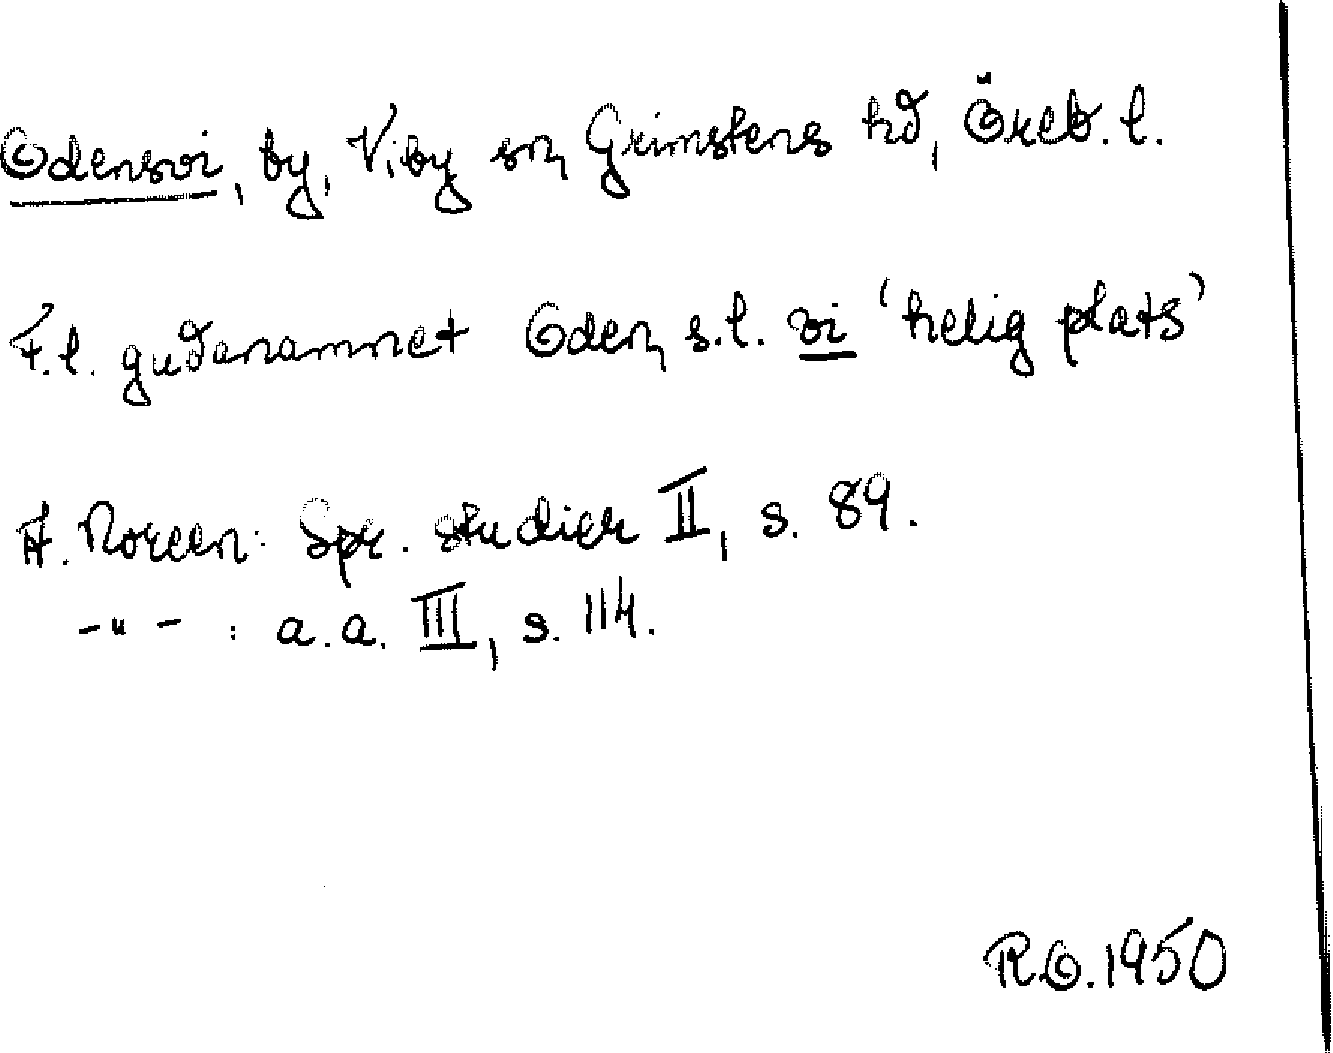 Odensvi, by, Viby sn, Grimstens hd, Öreb. l.
F.l. gudanamnet Oden, s.l. vi 'helig plats'
A. Noreen: Spr. studier II, s. 89.
-"- : a.a. III, s. 114.
R.O. 1950